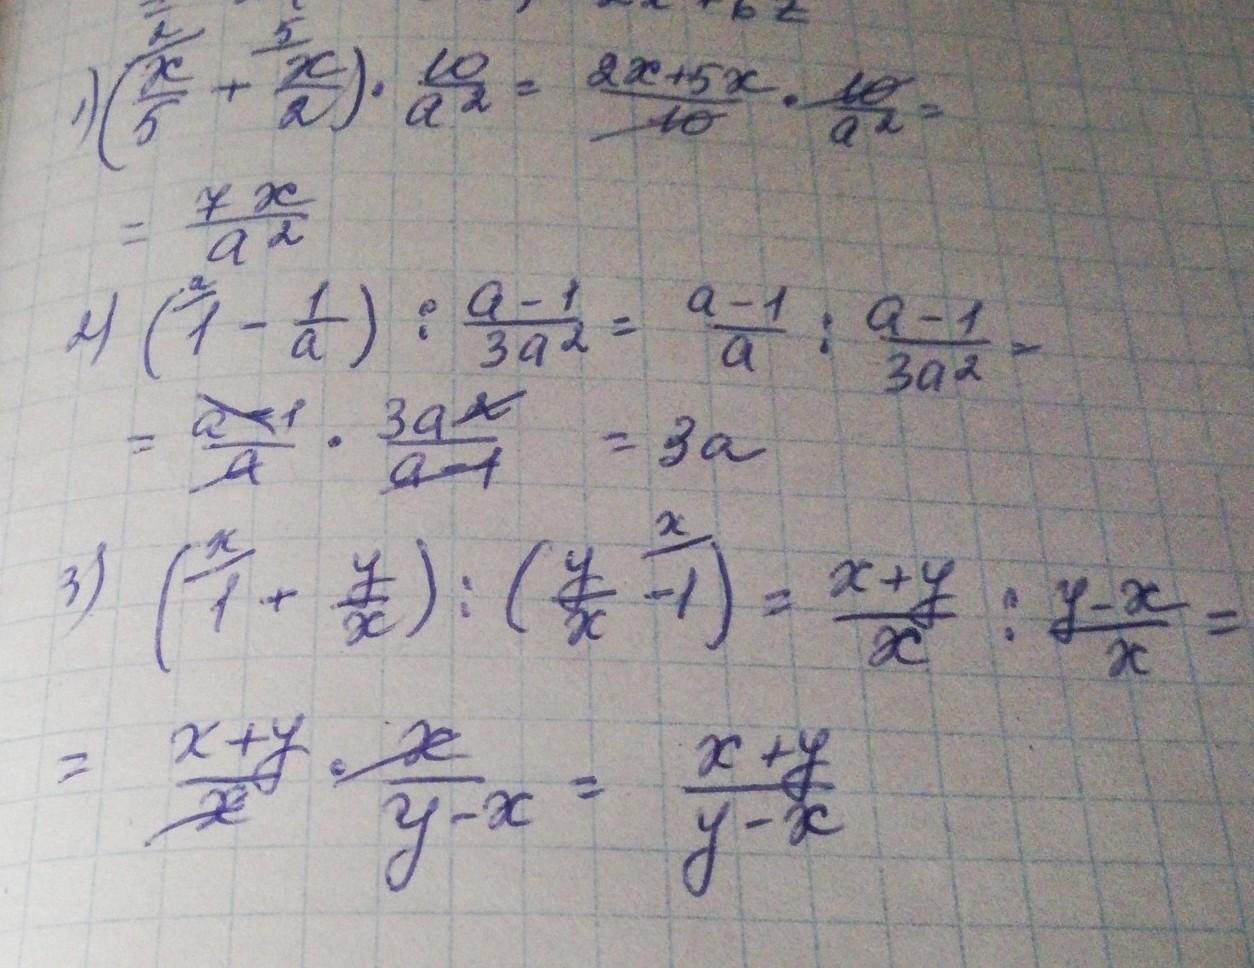 2x + 6z
1) (x/5 + x/2) · 10/a² = (2x+5x)/10 · 10/a² =
= 7x/a²
2) (1 - 1/a) : (a-1)/3a² = (a-1)/a : (a-1)/3a² =
= (a-1)/a · 3a²/(a-1) = 3a
3) (1 + y/x) : (y/x - 1) = (x+y)/x : (y-x)/x =
= (x+y)/x · x/(y-x) = (x+y)/(y-x)